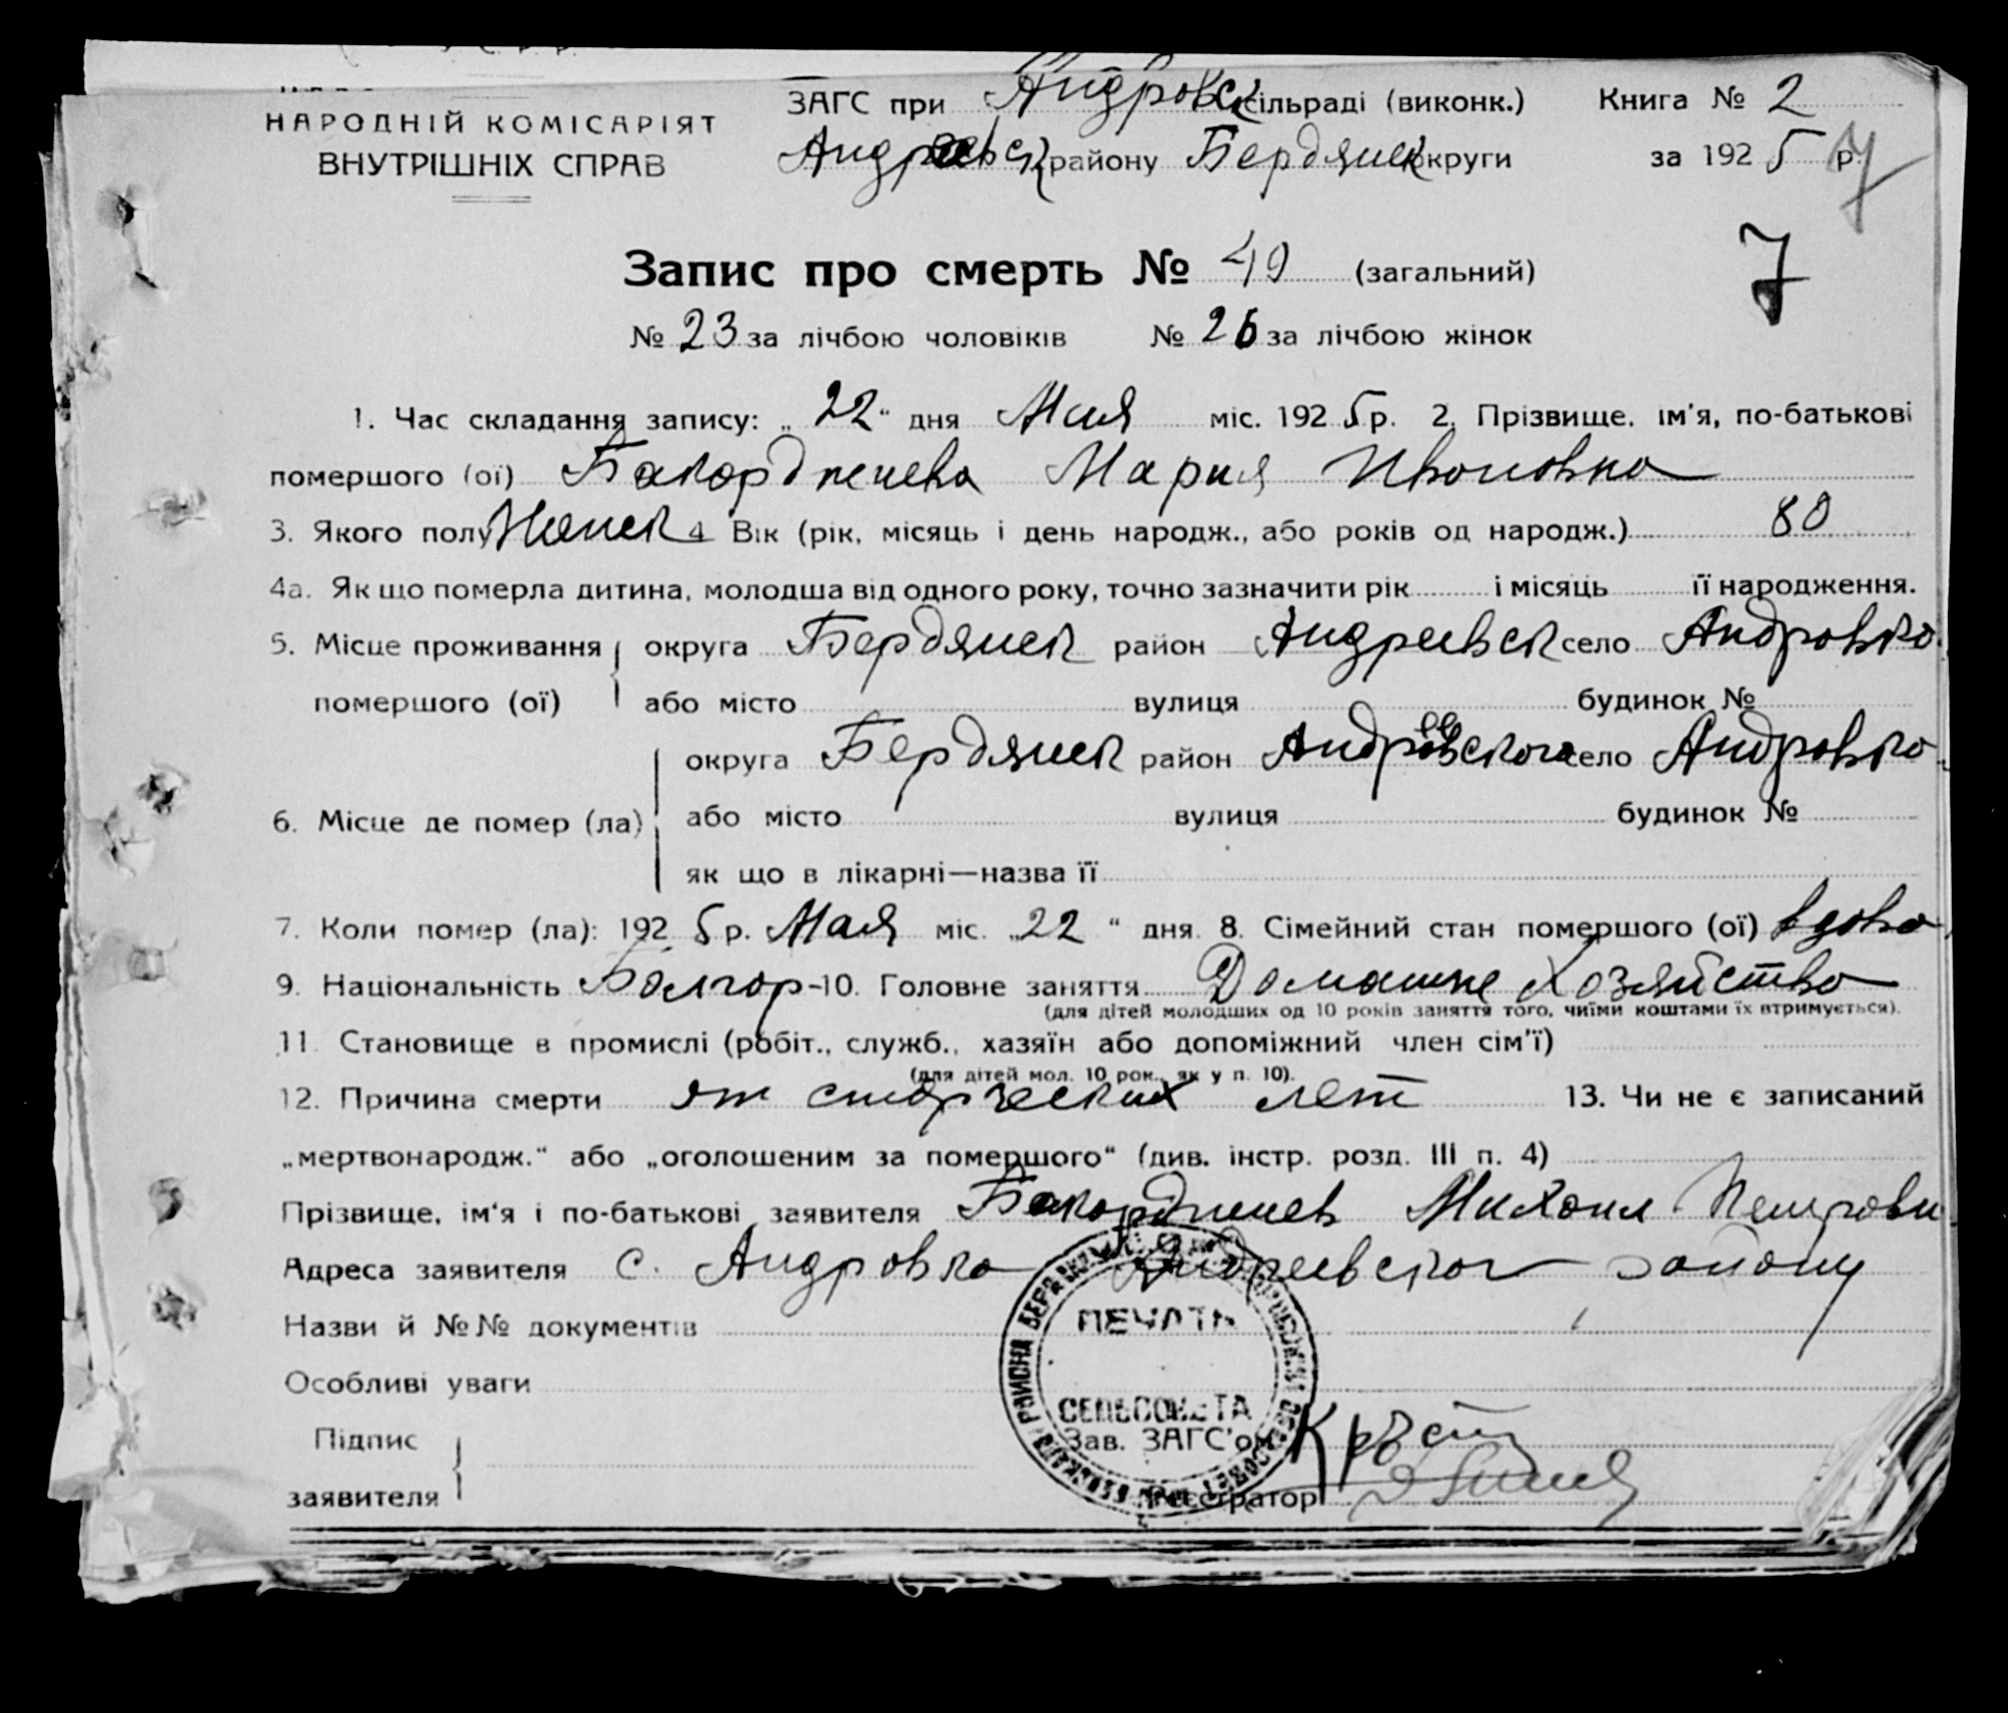 НАРОДНІЙ КОМІСАРІЯТ
ВНУТРІШНІХ СПРАВ
ЗАГС при Андровск сільраді (виконк.) Книга № 2
Андреевск району Бердянск округи за 1925 р. 7
7
Запис про смерть № 49 (загальний)
№ 23 за лічбою чоловіків № 26 за лічбою жінок
1. Час складання запису: „ 22 “ дня Мая міс. 1925 р. 2. Прізвище, ім'я, по-батькові
помершого (ої) Мария Ивановна
3. Якого полу Женск 4 Вік (рік, місяць і день народж., або років од народж.) 80
4а. Як що померла дитина, молодша від одного року, точно зазначити рік і місяць її народження.
5. Місце проживання округа Бердянск район Андреевск село Андровка
помершого (ої) або місто вулиця будинок №
округа Бердянск район Андреевского село Андровка
6. Місце де помер (ла) або місто вулиця будинок №
як що в лікарні—назва її
7. Коли помер (ла): 1925 р. Мая міс. „22 “ дня 8. Сімейний стан помершого (ої) вдова
9. Національність Болгар- 10. Головне заняття Домашне хозяйство
(для дітей молодших од 10 років заняття того, чиїми коштами їх втримується).
11. Становище в промислі (робіт., служб., хазяїн або допоміжний член сім'ї)
(для дітей мол. 10 рок., як у п. 10).
12. Причина смерти от старческих лет 13. Чи не є записаний
„мертвонародж.“ або „оголошеним за помершого“ (див. інстр. розд. III п. 4)
Прізвище, ім'я і по-батькові заявителя Михаил Петрови
Адреса заявителя с. Андровка Андреевског району
Назви й №№ документів
Особливі уваги
ПЕЧАТЬ
СЕЛЬСОВЕТА
Підпис
заявителя
Зав. ЗАГС'ом
Реєстратор